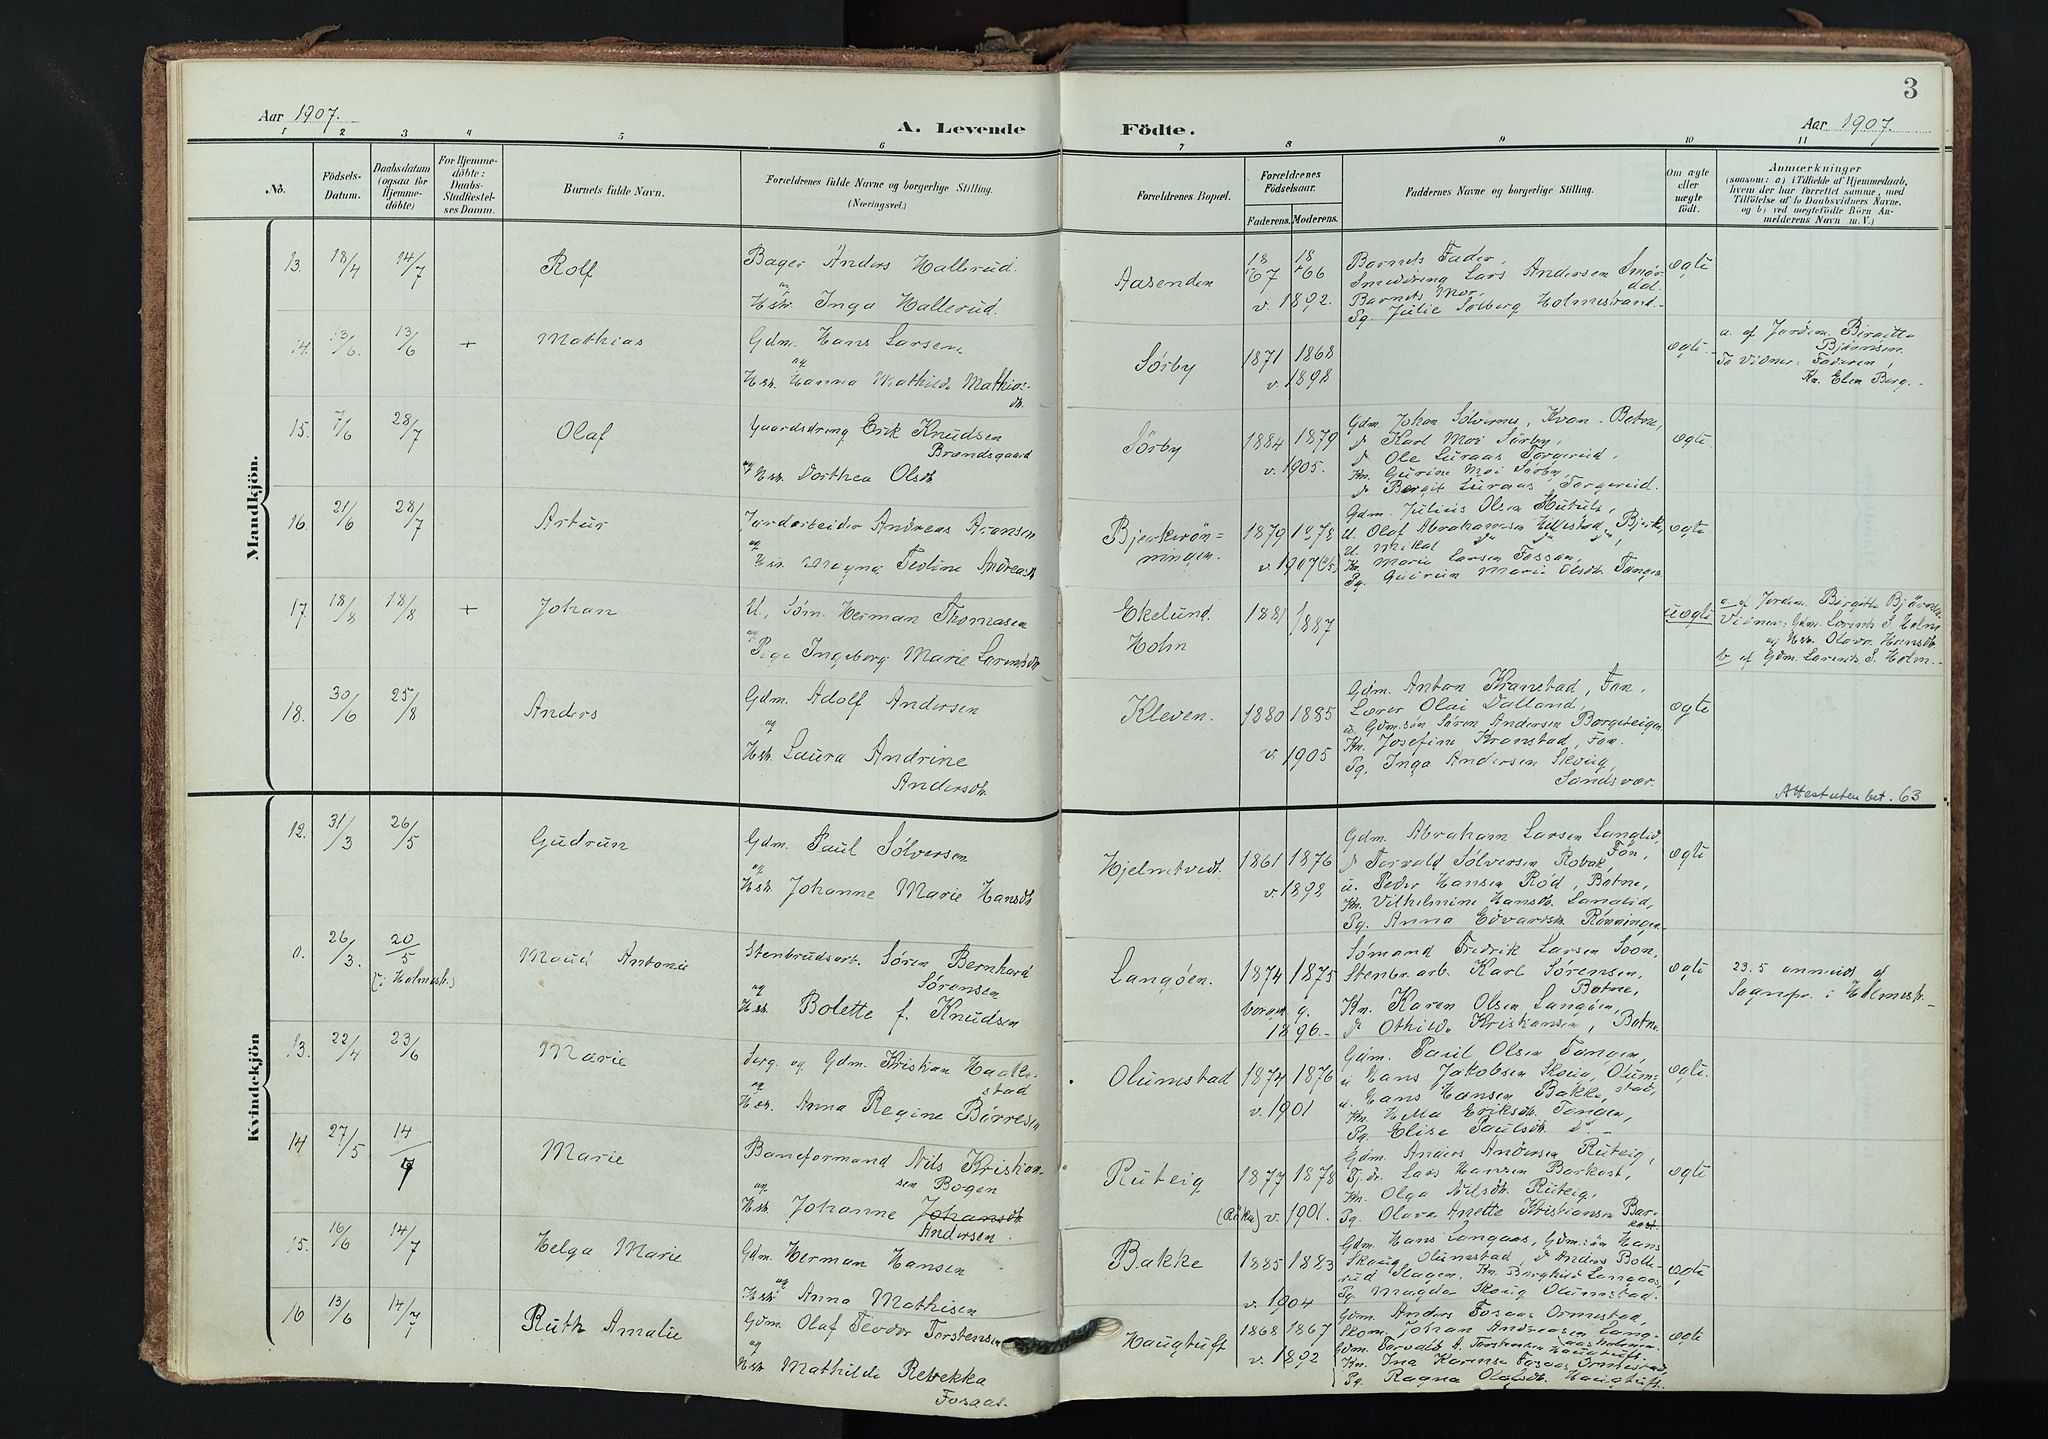 3
Aar 1907.
A. Levende Födte.
Aar 1907.
1 2 3 4 5 6 7 8 9 10 11
No.
Födsels-
Datum.
Daabsdatum
(ogsaa for
Hjemme-
döbte)
For Hjemme-
döbte:
Daabs-
Stadfæstel-
ses Datum.
Barnets fulde Navn.
Forældrenes fulde Navne og borgerlige Stilling.
(Næringsvei.)
Forældrenes Bopæl.
Forældrenes
Födselsaar.
Faderens. Moderens.
Faddernes Navne og borgerlige Stilling.
Om ægte
eller
uægte
födt.
Anmærkninger
(saasom: a) i Tilfælde af Hjemmedaab,
hvem der har forrettet samme, med
Tilföielse af to Daabsvidners Navne.
og b) ved uægtefödte Börn An-
melderens Navn m. V.)
Mandkjön.
13. 18/4 14/7 Rolf
Bager Anders Hallerud.
og
Hstr. Inga Hallerud.
Aasenden
18 18
67 66
v. 1892.
Barnets Fader,
Smeddreng Lars Andersen Smør-
dal
Barnets Mor,
Pg. Julie Solberg Holmestrand.
ægte
14. 13/6. 13/6 + Mathias
Gdm. Hans Larsen
og
Hstr. Hanna Mathilde Mathias-
dtr.
Sørby
1871 1868
v. 1898
ægte.
a. af Jordm. Birgitte
Bjørnsen.
To Vidner: Faderen,
Kn. Elen Berg.
15. 7/6 28/7 Olaf
Gaardsdreng Erik Knudsen
Brændsgaard
og Hstr. Dorthea Olsdtr.
Sørby
1884 1879
v. 1905.
Gdm. Johan Sølvernes, Kvan. Botne,
d. Karl Moi Sørby,
d. Ole Luraas Torgersrud,
Kn. Gurine Moi Sørby,
d. Bergit Luraas, Torgersrud.
ægte
16. 21/6 28/7 Artur
Jordarbeider Andreas Aronsen
og
Hstr. Magna Teoline Andreasdtr.
Bjerkerøn-
ningen.
1879 1878
v. 1907
Gdm. Julius Olsen
U. Olaf Abrahamsen Hillestad, Bjerke,
U. Mikal
Kn. Marie Larsen Fossan,
Pg. Gudrun Marie Olsdtr. Tangen
ægte
17. 18/8 18/8 + Johan
U., Søm. Herman Thomasen
og
Pige Ingeborg Marie Lorentsdtr.
Ekelund.
Holm
1881 1887
uægte
a. af Jordm. Birgitte Bjørnsen.
Vidner: Gdm. Lorents S. Holm
og Hstr. Olava Hansdtr.
b. af Gdm. Lorents S. Holm.
18. 30/6 25/8 Anders
Gdm. Adolf Andersen
og
Hstr. Laura Andrine
Andersdtr.
Kleven.
1880 1885
v. 1905
Gdm. Anton Kranstad, Fon,
Lærer Olai Dalland,
u. Gdm.søn Søren Andersen Borgeteigen
Kn. Josefine Kranstad, Fon.
Pg. Inga Andersen Skoug,
Sandsvær.
ægte
Attest uten bet. 63
Kvindekjön
12. 31/3 26/5 Gudrun
Gdm. Paul Sølversen
og
Hstr. Johanne Marie Hansdtr.
Hjelmtvedt.
1861 1876
v. 1898
Gdm. Abraham Larsen Langlid,
Fon,
d. Torvald Sølversen Robak,
u. Peder Hansen Rød, Botne,
Kn. Vilhelmine Hansdtr. Langlid,
Pg. Anna Edvardsdtr. Rønningen
ægte
0. 26/3. 20/5 (i Holmestr.) Maud Antonie
Stenbrudsarb. Søren Bernhard
Sørensen
og
Hstr. Bolette f. Knudsen
Langøen.
1874 1875
borgm. g.
1896.
Sømand Fredrik Larsen Soon,
Stenbr.arb. Karl Sørensen,
Botne,
Kn. Karen Olsen Langøen,
d. Othilde Kristiansen, Botne
ægte
23.5 anmeldt af
Sognepr. i Holmestr.
13. 22/4 23/6 Marie
Serg. og Gdm. Kristian Haake-
stad
og
Hstr. Anna Regine Børresen
Olumstad
1874 1876
v. 1901
Gdm. Paul Olsen Tangen,
u Hans Jakobsen Skoug, Olum-
stad,
u. Hans Hansen Bakke,
Kn. Helta Eriksdtr. Tangen,
Pg. Elise Paulsdtr. d.
ægte.
14 27/5 14/7 Marie
Baneformand Nils Kristian-
sen Bogen
og
Hstr. Johanne Johansdtr.
Andersen.
Ruteig
(Röken)
1877 1878
v. 1901.
Gdm. Anders Andersen Ruteig,
Tj.dr. Lars Hansen Barkost,
Kn. Olga Nilsdtr. Ruteig,
Pg. Olava Anette Kristiansen Bar-
kost
ægte
15. 16/6 14/7 Helga Marie
Gdm. Herman Hansen
og
Hstr. Anna Mathisen
Bakke
1885 1883
v. 1904
Gdm. Hans Langaas, Gdm.søn Hans
Skoug Olumstad, d. Anders Bolle-
rud Slagen, Kn. Borghild Langaas,
Pg. Magda Skoug Olumstad.
ægte
16 13/6 14/7 Ruth Amalie
Gdm. Olaf Teodor Torstensen
og
Hstr. Mathilde Rebekka
Fosaas.
Haugtuft
1868 1867
v. 1892
Gdm. Anders Fosaas Ormestad,
Skom. Johan Andreasen Lang-
Gdm. Torvald A. Torstensen Haugtuft,
Kn. Ina Karense Fosaas Ormestad,
Pg. Ragna Olafsdtr. Haugtuft.
ægte